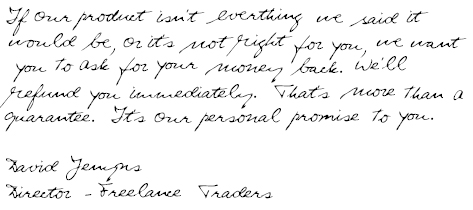 If our product isn't everthing we said it
would be, or it's not right for you, we want
you to ask for your money back. We'll
refund you immediately. That's more than a
guarantee. It's our personal promise to you.
David Jenyns
Director - Freelance Traders